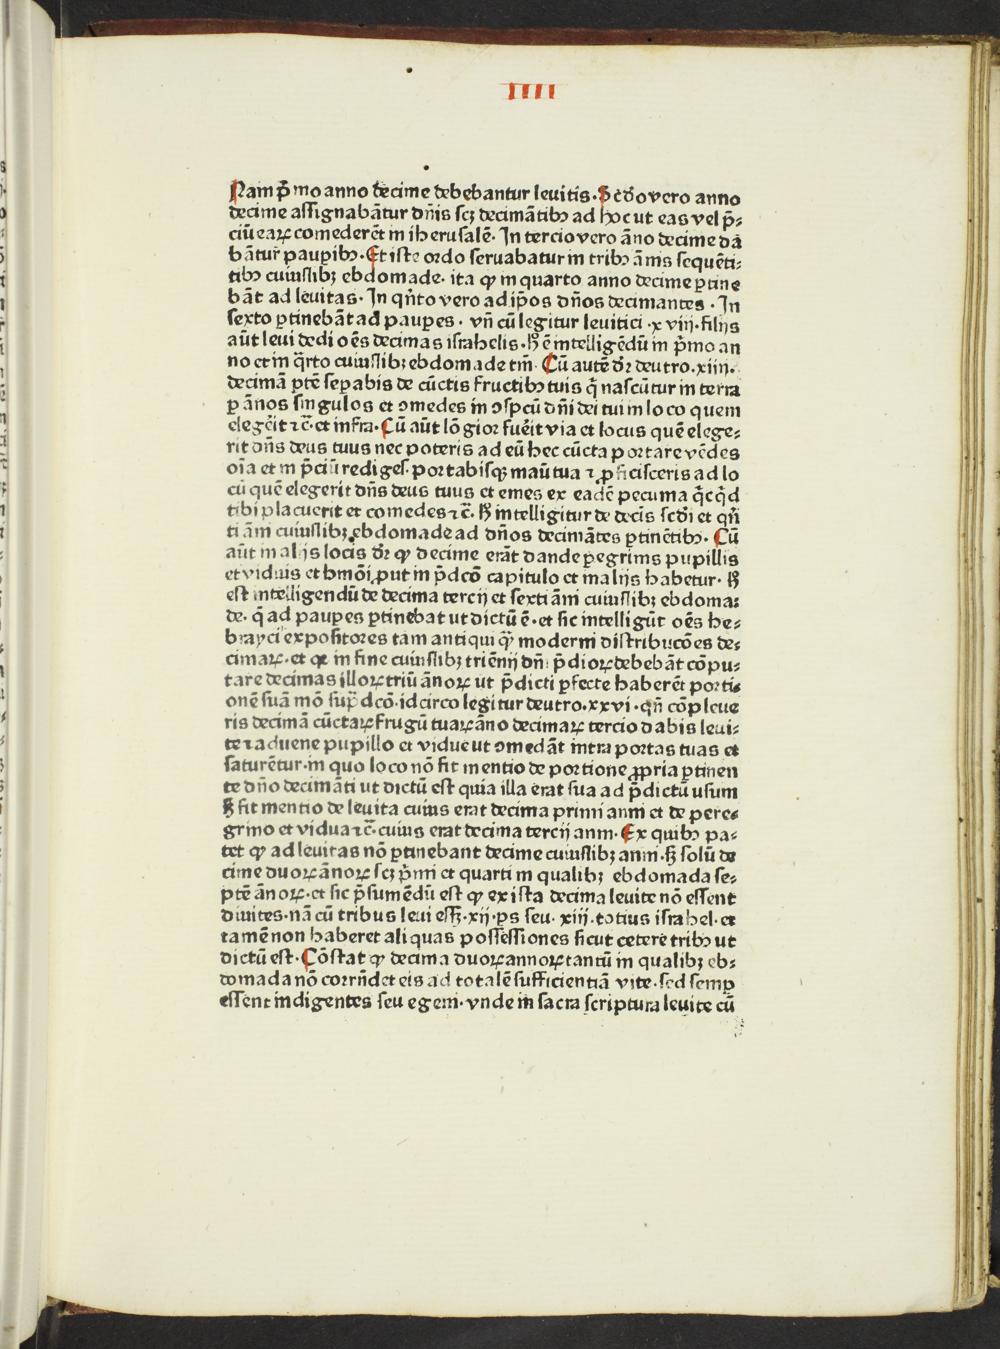 IIII
Nam p̄mo anno decime debebantur leuitis. Scd̄o vero anno
decime assignabāt̄ur dn̄is scꝫ decimātibꝰ ad hoc ut eas vel p̄-
ciū earꝝ comederēt in iherusalē. In tercio vero āno decime dā
bātur paupibꝰ. Et iste ordo seruabatur in tribꝰ ānis sequēti-
tibꝰ cuiuslibꝫ ebdomade. ita ꝙ in quarto anno decime ꝑtine
bāt ad leuitas. In qn̄to vero ad ip̄os dn̄os decimantes. In
sexto ꝑtinebāt ad paupes. vn̄ cū legitur leuitici .xviii. filijs
aūt leui dedi oēs decimas israhelis. ħ ē intelligēdū in p̄mo an
no et in q̄rto cuiuslibꝫ ebdomade tm̄. Cū autē dr̄ deutro. xiiii.
decimā ꝑtē sepabis de cūctis fructibꝰ tuis q̄ nascūtur in terra
ꝑ ānos singulos et ꝯmedes in ꝯspcū dn̄i dei tui in loco quem
elegēit ⁊c̄. et infra. Cū aūt lōgior fuēit via et locus quē elege-
rit dn̄s deus tuus nec poteris ad eū hec cūcta portare vēdes
oīa et in p̄ciū rediges. portabisqꝫ manū tua ⁊ ꝓficisceris ad lo
cū quē elegerit dn̄s deus tuus et emes ex eadē pecunia q̄cq̄d
tibi placuerit et comedes ⁊c̄. ħ intelligitur de decīs scd̄i et qn̄
ti āni cuiuslibꝫ ebdomade ad dn̄os decimātes ꝑtinētibꝰ. Cū
aūt in alijs locis dr̄ ꝙ decime erāt dande ꝑegrinis pupillis
et viduis et hmōi ꝓut in p̄dcō capitulo et in alijs habetur. ħ
est intelligendū de decima tercij et sexti āni cuiuslibꝫ ebdoma-
de. q̄ ad paupes ꝑtinebat ut dictū ē. et sic intelligūt oēs he-
brayci expositores tam antiqui q̄ꝫ moderni distribucōes de-
cimaꝝ. et ꝙ in fine cuiuslibꝫ triēnij dn̄i p̄dioꝝ debebāt cōpu-
tare decimas illoꝝ triū ānoꝝ ut p̄dicti ꝑfecte haberēt porti-
onē suā mō sup̄dcō. idcirco legitur deutro. xxvi. qn̄ cōpleue
ris decimā cūctaꝝ frugū tuaꝝ āno decimaꝝ tercio dabis leui-
te ⁊ aduene pupillo et vidue ut ꝯmedāt intra portas tuas et
saturētur. in quo loco nō fit mentio de portione ꝓpria ꝑtinen
te dn̄o decimāti ut dictū est quia illa erat sua ad p̄dictū usum
ꞩ fit mentio de leuita cuius erat decima primi anni et de pere-
grino et vidua ⁊c̄. cuius erat decima tercij anni. Ex quibꝰ pa-
tet ꝙ ad leuitas nō ꝑtinebant decime cuiuslibꝫ anni. ꞩ solū de
cime duoꝝ ānoꝝ scꝫ p̄mi et quarti in qualibꝫ ebdomada se-
ptē ānoꝝ. et sic p̄sumēdū est ꝙ ex ista decima leuite nō essent
diuites. nā cū tribus leui essꝫ .xij. ꝑs seu .xiii. totius israhel. et
tamē non haberet aliquas possessiones sicut cetere tribꝰ ut
dictū est. Cōstat ꝙ decima duoꝝ annoꝝ tantū in qualibꝫ eb-
domada nō corrn̄det eis ad totalē sufficientiā vite. sed semꝑ
essent indigentes seu egeni. vnde in sacra scriptura leuite cū